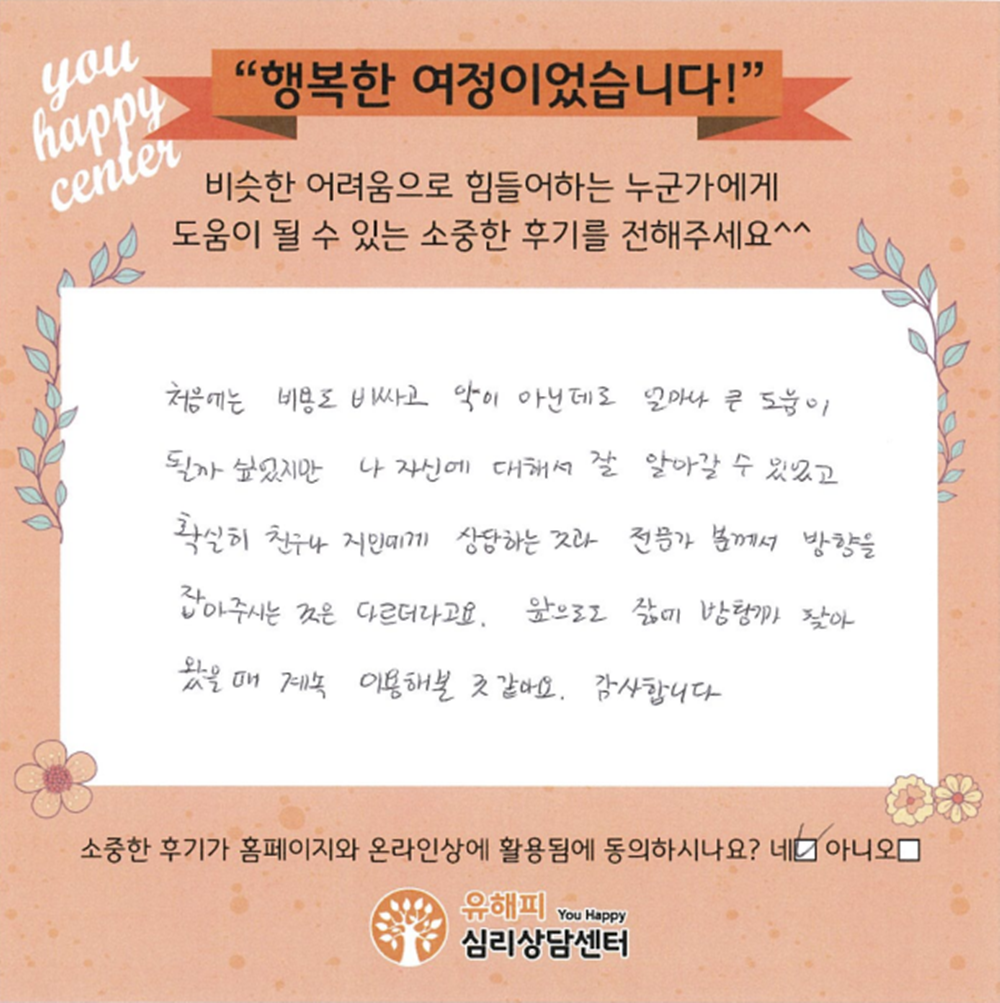 you
happy
center
“행복한 여정이었습니다!”
비슷한 어려움으로 힘들어하는 누군가에게
도움이 될 수 있는 소중한 후기를 전해주세요^^
처음에는 비용도 비싸고 약이 아닌데도 얼마나 큰 도움이
될까 싶었지만 나 자신에 대해서 잘 알아갈 수 있었고
확실히 친구나 지인에게 상담하는 것과 전문가 분께서 방향을
잡아주시는 것은 다르더라고요. 앞으로도 삶에 찾아
왔을 때 계속 이용해볼 것 같아요. 감사합니다
소중한 후기가 홈페이지와 온라인상에 활용됨에 동의하시나요? 네☑ 아니오☐
유해피 You Happy
심리상담센터